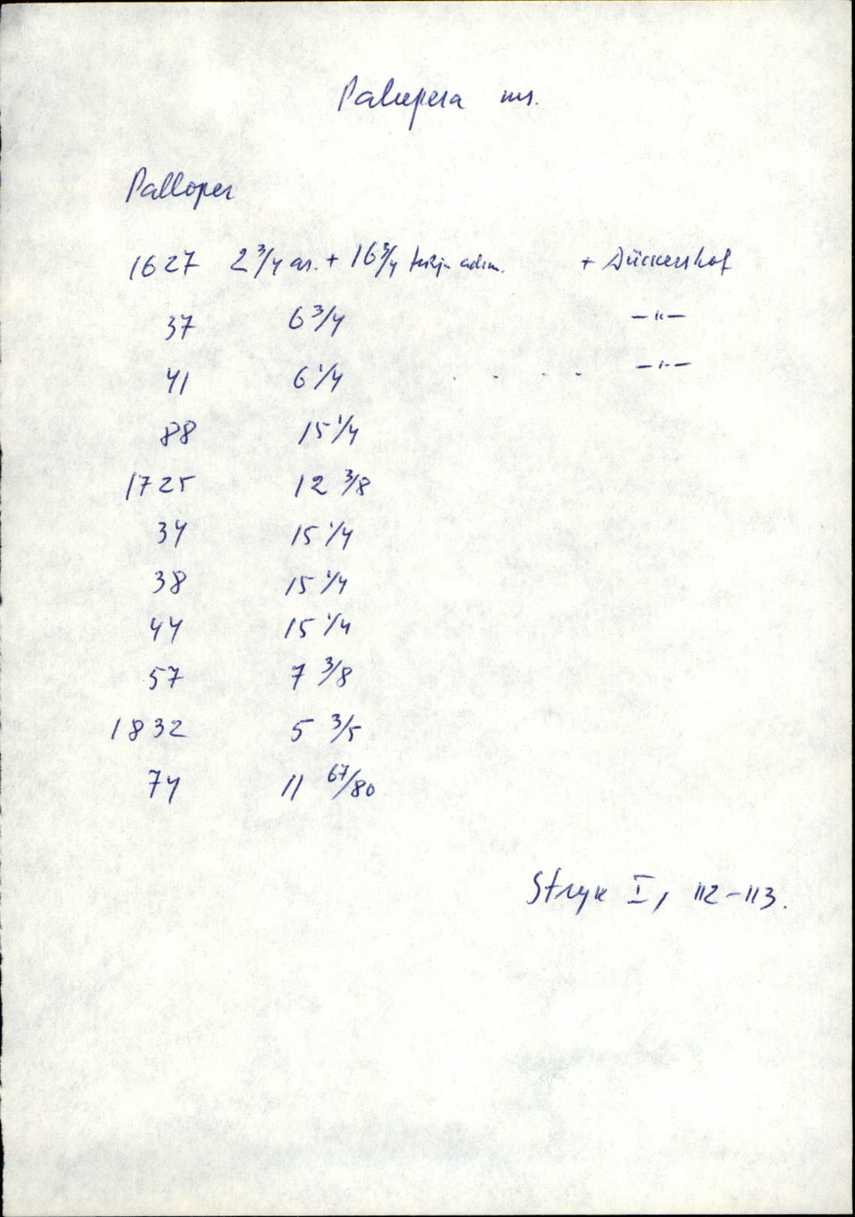 Palupera ms.
Palloper
1627 2 3/4 ar. + 16 3/4 + Dückershof
37 6 3/4 —"—
41 6 1/4 —"—
88 15 1/4
1725 12 3/8
34 15 1/4
38 15 1/4
44 15 1/4
57 7 3/8
1832 5 3/5
74 11 67/80
Stryk I, 112-113.